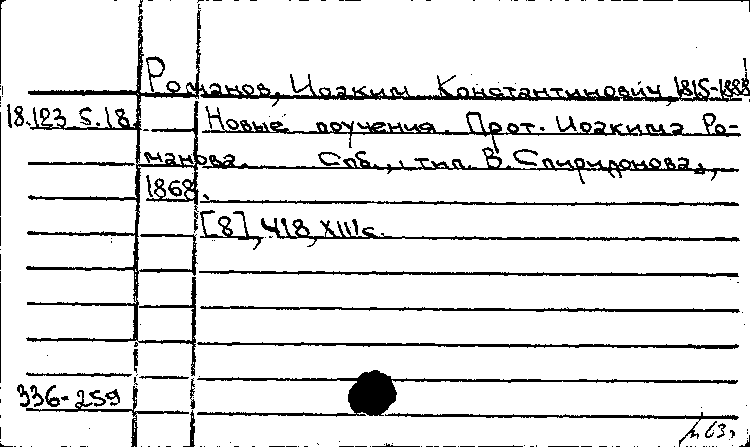 Романов, Иоаким Константинович, 1815-1888
18.123.5.18. Новые поучения. Прот. Иоакима Ро-
манова. Спб., тип. В. Спиридонова,
1868.
[8], 418, XIII с.
336-259